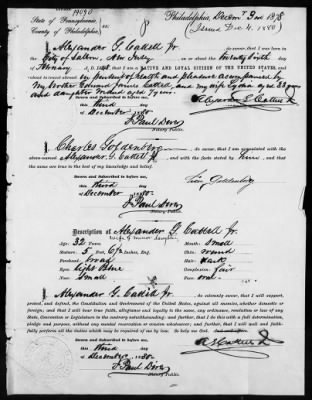 19090
State of Pennsylvania,
County of Philadelphia,
Philadelphia, Decem 3rd 1878
(Issued Dec 4. 1880)
Alexander G. Cattell Jr. do swear that I was born in the
City of Salem, New Jersey on the twenty
NATIVE AND LOYAL CITIZEN OF THE UNITED STATES and
about to travel abroad on account of health and pleasure accompanied by
My brother Edward James Cattell, and my wife Lydia aged 33 years
and daughter aged 7 years
Sworn and Subscribed to before me,
this third day
of December 1880
J. Paul
Notary Public.
Alexander G. Cattell Jr
Charles Goldenberg do swear, that I am acquainted with the
above-named Alexander G. Cattell Jr. and with the facts stated by him, and
that the same are true to the best of my knowledge and belief.
Sworn and Subscribed to before me,
this third day
of December 1880
J. Paul
Notary Public.
Goldenberg
Description of Alexander G. Cattell Jr.
Age: 32 Years.
Mouth: small
Stature: 5 Feet, 6½ Inches, Eng.
Chin: round
Forehead: broad
Hair: dark
Eyes: Light Blue
Complexion: fair
Nose: small
Face: oval
I, Alexander G. Cattell Jr. do solemnly swear that I will support,
protect, and defend the Constitution and Government of the United States, against all enemies, whether domestic or
foreign; and that I will bear true faith, allegiance and loyalty to the same, any ordinance, resolution or law of any
State, Convention or Legislature to the contrary notwithstanding; and further, that I do this with a full determination,
pledge and purpose, without any mental reservation or evasion whatsoever; and further, that I will well and faith-
fully perform all the duties which may be required of me by law. So help me God.
Sworn and Subscribed to before me,
this third day
of December 1880
J. Paul
Notary Public.
A G Cattell Jr